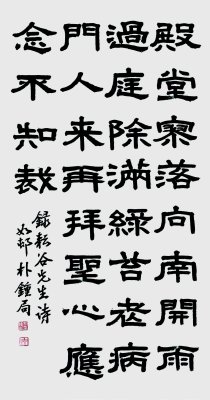 殿堂寥落向南開雨
過庭除滿綠苔老病
門人来再拜聖心應
念不知裁
錄耘谷先生诗
如邨朴鍾局